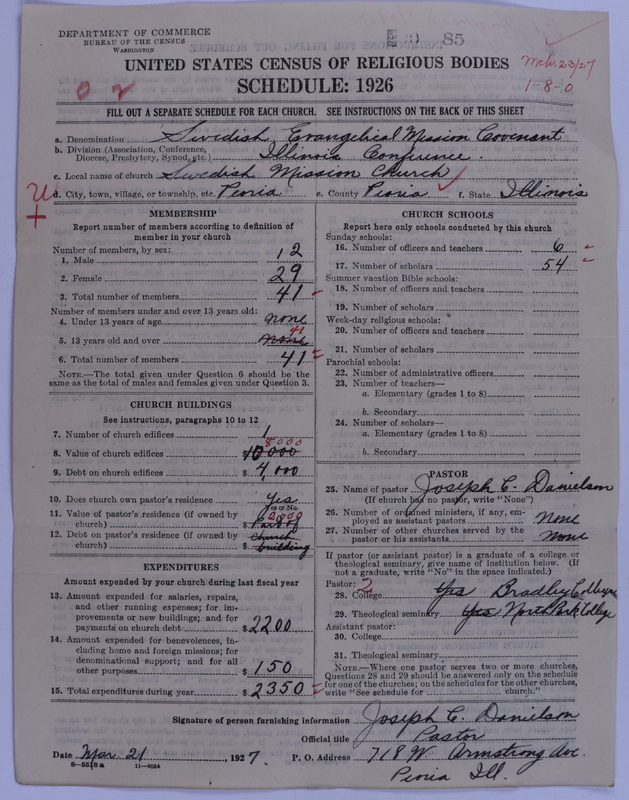 DEPARTMENT OF COMMERCE
BUREAU OF THE CENSUS
WASHINGTON
85
UNITED STATES CENSUS OF RELIGIOUS BODIES
Mch. 23/27
SCHEDULE: 1926
1-8-0
FILL OUT A SEPARATE SCHEDULE FOR EACH CHURCH. SEE INSTRUCTIONS ON THE BACK OF THIS SHEET
a. Denomination Swedish Evangelical Mission Covenant
b. Division (Association, Conference, Diocese, Presbytery, Synod, etc.) Illinois Conference.
c. Local name of church Swedish Mission Church
d. City, town, village, or township, etc. Peoria e. County Peoria f. State Illinois
MEMBERSHIP
Report number of members according to definition of
member in your church
Number of members, by sex:
1. Male 12
2. Female 29
3. Total number of members 41
Number of members under and over 13 years old:
4. Under 13 years of age none
5. 13 years old and over none 41
6. Total number of members 41
NOTE.—The total given under Question 6 should be the
same as the total of males and females given under Question 3.
CHURCH BUILDINGS
See instructions, paragraphs 10 to 12
7. Number of church edifices 1
8. Value of church edifices $ 10000 8000
9. Debt on church edifices $ 4,000
10. Does church own pastor's residence Yes
(Yes or No)
11. Value of pastor's residence (if owned by
church) $ Part of 2000
12. Debt on pastor's residence (if owned by
church) $ church building
EXPENDITURES
Amount expended by your church during last fiscal year
13. Amount expended for salaries, repairs,
and other running expenses; for im-
provements or new buildings; and for
payments on church debt $ 2200
14. Amount expended for benevolences, in-
cluding home and foreign missions; for
denominational support; and for all
other purposes $ 150
15. Total expenditures during year $ 2350
CHURCH SCHOOLS
Report here only schools conducted by this church
Sunday schools:
16. Number of officers and teachers 6
17. Number of scholars 54
Summer vacation Bible schools:
18. Number of officers and teachers
19. Number of scholars
Week-day religious schools:
20. Number of officers and teachers
21. Number of scholars
Parochial schools:
22. Number of administrative officers
23. Number of teachers—
a. Elementary (grades 1 to 8)
b. Secondary
24. Number of scholars—
a. Elementary (grades 1 to 8)
b. Secondary
PASTOR
25. Name of pastor Joseph C. Danielson
(If church has no pastor, write "None")
26. Number of ordained ministers, if any, em-
ployed as assistant pastors None
27. Number of other churches served by the
pastor or his assistants None
If pastor (or assistant pastor) is a graduate of a college or
theological seminary, give name of institution below. (If
not a graduate, write "No" in the space indicated.)
Pastor: 2
28. College Yes Bradley College
29. Theological seminary Yes North Park College
Assistant pastor:
30. College
31. Theological seminary
NOTE.—Where one pastor serves two or more churches,
Questions 28 and 29 should be answered only on the schedule
for one of the churches; on the schedules for the other churches,
write "See schedule for church."
Signature of person furnishing information Joseph C. Danielson
Official title Pastor
Date Mar. 21 1927. P. O. Address 718 W. Armstrong Ave.
8—5518a 11—9064
Peoria Ill.